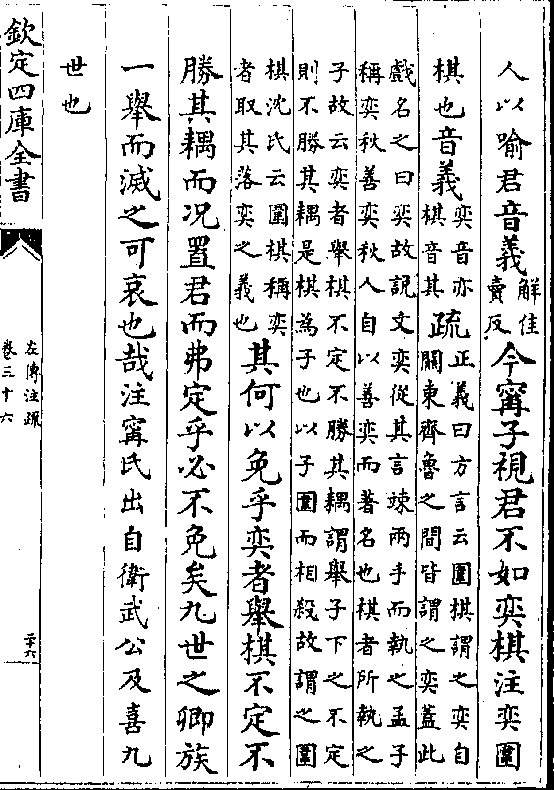 人以喻君音義解佳賣反今甯子視君不如奕棋注奕圍
棋也音義奕音亦棋音其疏正義曰方言云圍棋謂之奕自關東齊魯之間皆謂之奕蓋此
戲名之曰奕故說文奕從其言竦兩手而執之孟子
稱奕秋善奕秋人自以善奕而著名也棋者所執之
子故云奕者舉棋不定不勝其耦謂舉子下之不定
則不勝其耦是棋為子也以子圍而相殺故謂之圍
棋沈氏云圍棋稱奕者取其落奕之義也其何以免乎奕者舉棋不定不
勝其耦而况置君而弗定乎必不免矣九世之卿族
一舉而滅之可哀也哉注甯氏出自衛武公及喜九
世也
欽定四庫全書
左傳注疏
卷三十六
二十六